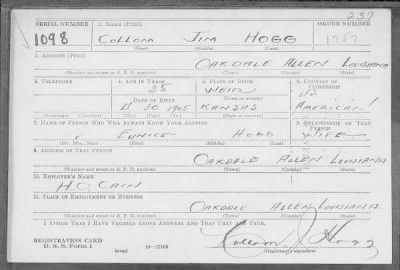 257
SERIAL NUMBER 1. NAME (Print) ORDER NUMBER
1098 COLLOM JIM HOGG 1757
(First) (Middle) (Last)
2. ADDRESS (Print)
OAKDALE ALLEN LOUISIANA
(Number and street or R. F. D. number) (Town) (County) (State)
3. TELEPHONE 4. AGE IN YEARS 5. PLACE OF BIRTH 6. COUNTRY OF CITIZENSHIP
35 WEIR
DATE OF BIRTH (Town or county)
30 1905 KANSAS AMERICA
(Exchange) (Number) (Mo.) (Day) (Yr.) (State or country)
7. NAME OF PERSON WHO WILL ALWAYS KNOW YOUR ADDRESS 8. RELATIONSHIP OF THAT PERSON
EUNICE HOGG WIFE
(Mr., Mrs., Miss) (First) (Middle) (Last)
9. ADDRESS OF THAT PERSON
OAKDALE ALLEN LOUISIANA
(Number and street or R. F. D. number) (Town) (County) (State)
10. EMPLOYER'S NAME
H.O. CAIN
11. PLACE OF EMPLOYMENT OR BUSINESS
OAKDALE ALLEN LOUISIANA
(Number and street or R. F. D. number) (Town) (County) (State)
I AFFIRM THAT I HAVE VERIFIED ABOVE ANSWERS AND THAT THEY ARE TRUE.
REGISTRATION CARD
D. S. S. Form 1 (over) 16—17105 Collom J Hogg
(Registrant's signature)